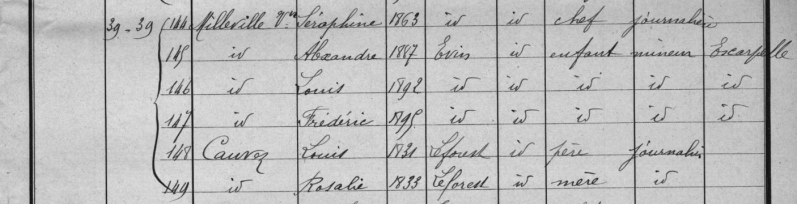 39-39 144 Milleville Vve Séraphine 1863 id id chef journalière
145 id Alexandre 1887 Evin id enfant mineur Escarpelle
146 id Louis 1892 id id id id id
147 id Frédéric 1895 id id id id id
148 Cauvez Louis 1831 Leforest id père journalier
149 id Rosalie 1833 Leforest id mère id